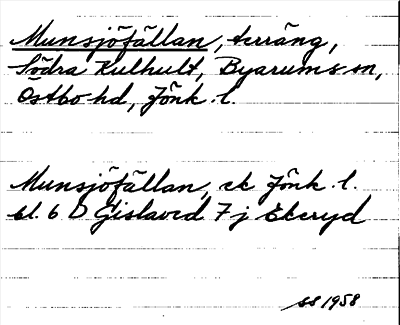 Munsjöfällan, terräng,
Södra Kulhult, Byarums sn,
Östbo hd, Jönk. l.
Munsjöfällan, ek Jönk. l.
bl. 6 D Gislaved 7 j Ekeryd
SS 1958